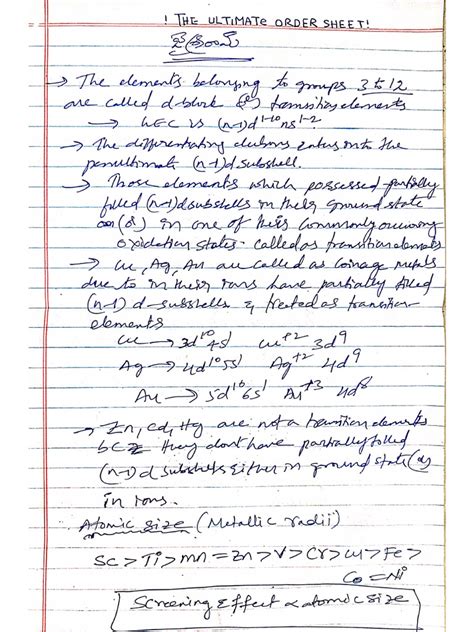 ! THE ULTIMATE ORDER SHEET!
→ The elements belonging to groups 3 to 12
are called d-block (or) transition elements
→ VEC is (n-1)d¹⁻¹⁰ns¹⁻²
→ The differentiating electrons enters into the
penultimate (n-1)d subshell.
→ Those elements which possessed partially
filled (n-1)d subshells in their ground state
(or) in one of their commonly occurring
oxidation states - called as transition elements
→ Cu, Ag, Au are called as coinage metals
due to in their ions have partially filled
(n-1) d-subshells & treated as transition
elements
Cu → 3d¹⁰4s¹ Cu⁺² 3d⁹
Ag → 4d¹⁰5s¹ Ag⁺² 4d⁹
Au → 5d¹⁰6s¹ Au⁺³ 4d⁸
→ Zn, Cd, Hg are not a transition elements
bcz they dont have partially filled
(n-1)d subshells either in ground state (or)
in ions.
Atomic size (Metallic radii)
Sc > Ti > Mn = Zn > V > Cr > Cu > Fe >
Co = Ni
Screening Effect ∝ atomic size